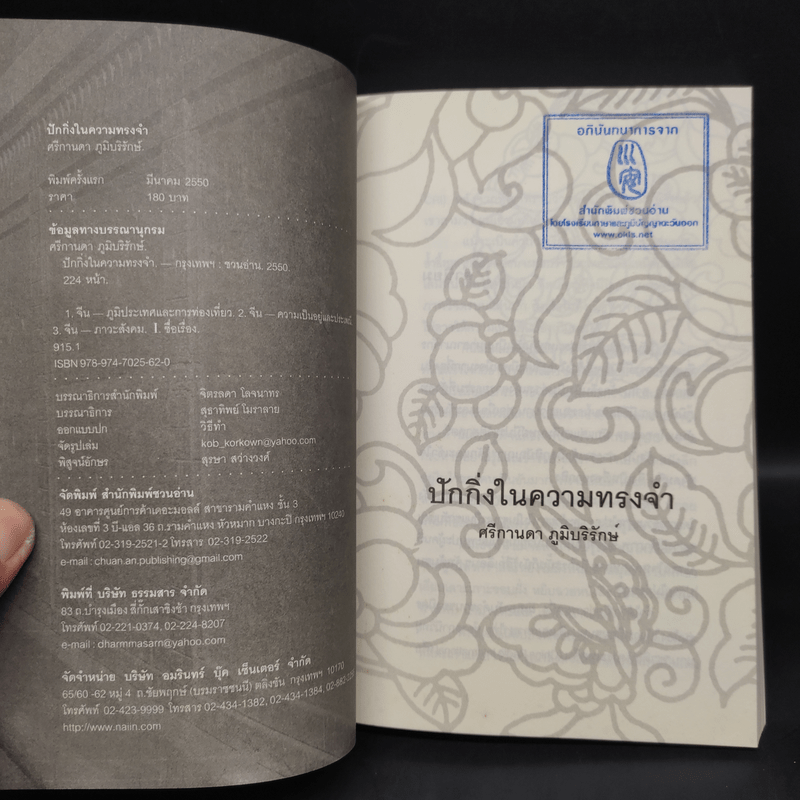 ปักกิ่งในความทรงจำ
ศรีกานดา ภูมิบริรักษ์.
พิมพ์ครั้งแรก มีนาคม 2550
ราคา 180 บาท
ข้อมูลทางบรรณานุกรม
ศรีกานดา ภูมิบริรักษ์.
ปักกิ่งในความทรงจำ. — กรุงเทพฯ : ชวนอ่าน. 2550.
224 หน้า.
1. จีน — ภูมิประเทศและการท่องเที่ยว. 2. จีน — ความเป็นอยู่และประเพณี.
3. จีน — ภาวะสังคม. I. ชื่อเรื่อง.
915.1
ISBN 978-974-7025-62-0
บรรณาธิการสำนักพิมพ์ จิตรลดา โลจนาทร
บรรณาธิการ สุธาทิพย์ โมราลาย
ออกแบบปก วิธีทำ
จัดรูปเล่ม kob_korkown@yahoo.com
พิสูจน์อักษร สุรษา สว่างวงศ์
จัดพิมพ์ สำนักพิมพ์ชวนอ่าน
49 อาคารศูนย์การค้าเดอะมอลล์ สาขารามคำแหง ชั้น 3
ห้องเลขที่ 3 บี-แอล 36 ถ.รามคำแหง หัวหมาก บางกะปิ กรุงเทพฯ 10240
โทรศัพท์ 02-319-2521-2 โทรสาร 02-319-2522
e-mail : chuan.an.publishing@gmail.com
พิมพ์ที่ บริษัท ธรรมสาร จำกัด
83 ถ.บำรุงเมือง สี่กั๊กเสาชิงช้า กรุงเทพฯ
โทรศัพท์ 02-221-0374, 02-224-8207
e-mail : dharmmasarn@yahoo.com
จัดจำหน่าย บริษัท อมรินทร์ บุ๊ค เซ็นเตอร์ จำกัด
65/60 -62 หมู่ 4 ถ.ชัยพฤกษ์ (บรมราชชนนี) ตลิ่งชัน กรุงเทพฯ 10170
โทรศัพท์ 02-423-9999 โทรสาร 02-434-1382, 02-434-1384,
http://www.naiin.com
อภินันทนาการจาก
สำนักพิมพ์ชวนอ่าน
โดยโรงเรียนภาษาและภูมิปัญญาตะวันออก
www.olds.net
ปักกิ่งในความทรงจำ
ศรีกานดา ภูมิบริรักษ์